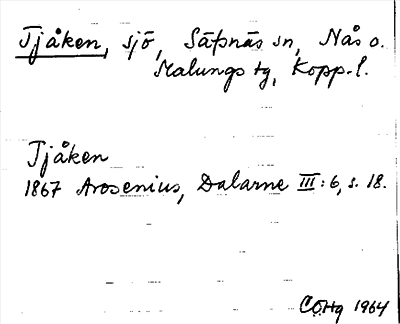 Tjåken, sjö, Säfsnäs sn, Nås o.
Malungs tg, Kopp. l.
Tjåken
1867 Arosenius, Dalarne III: 6, s. 18.
COHg 1964